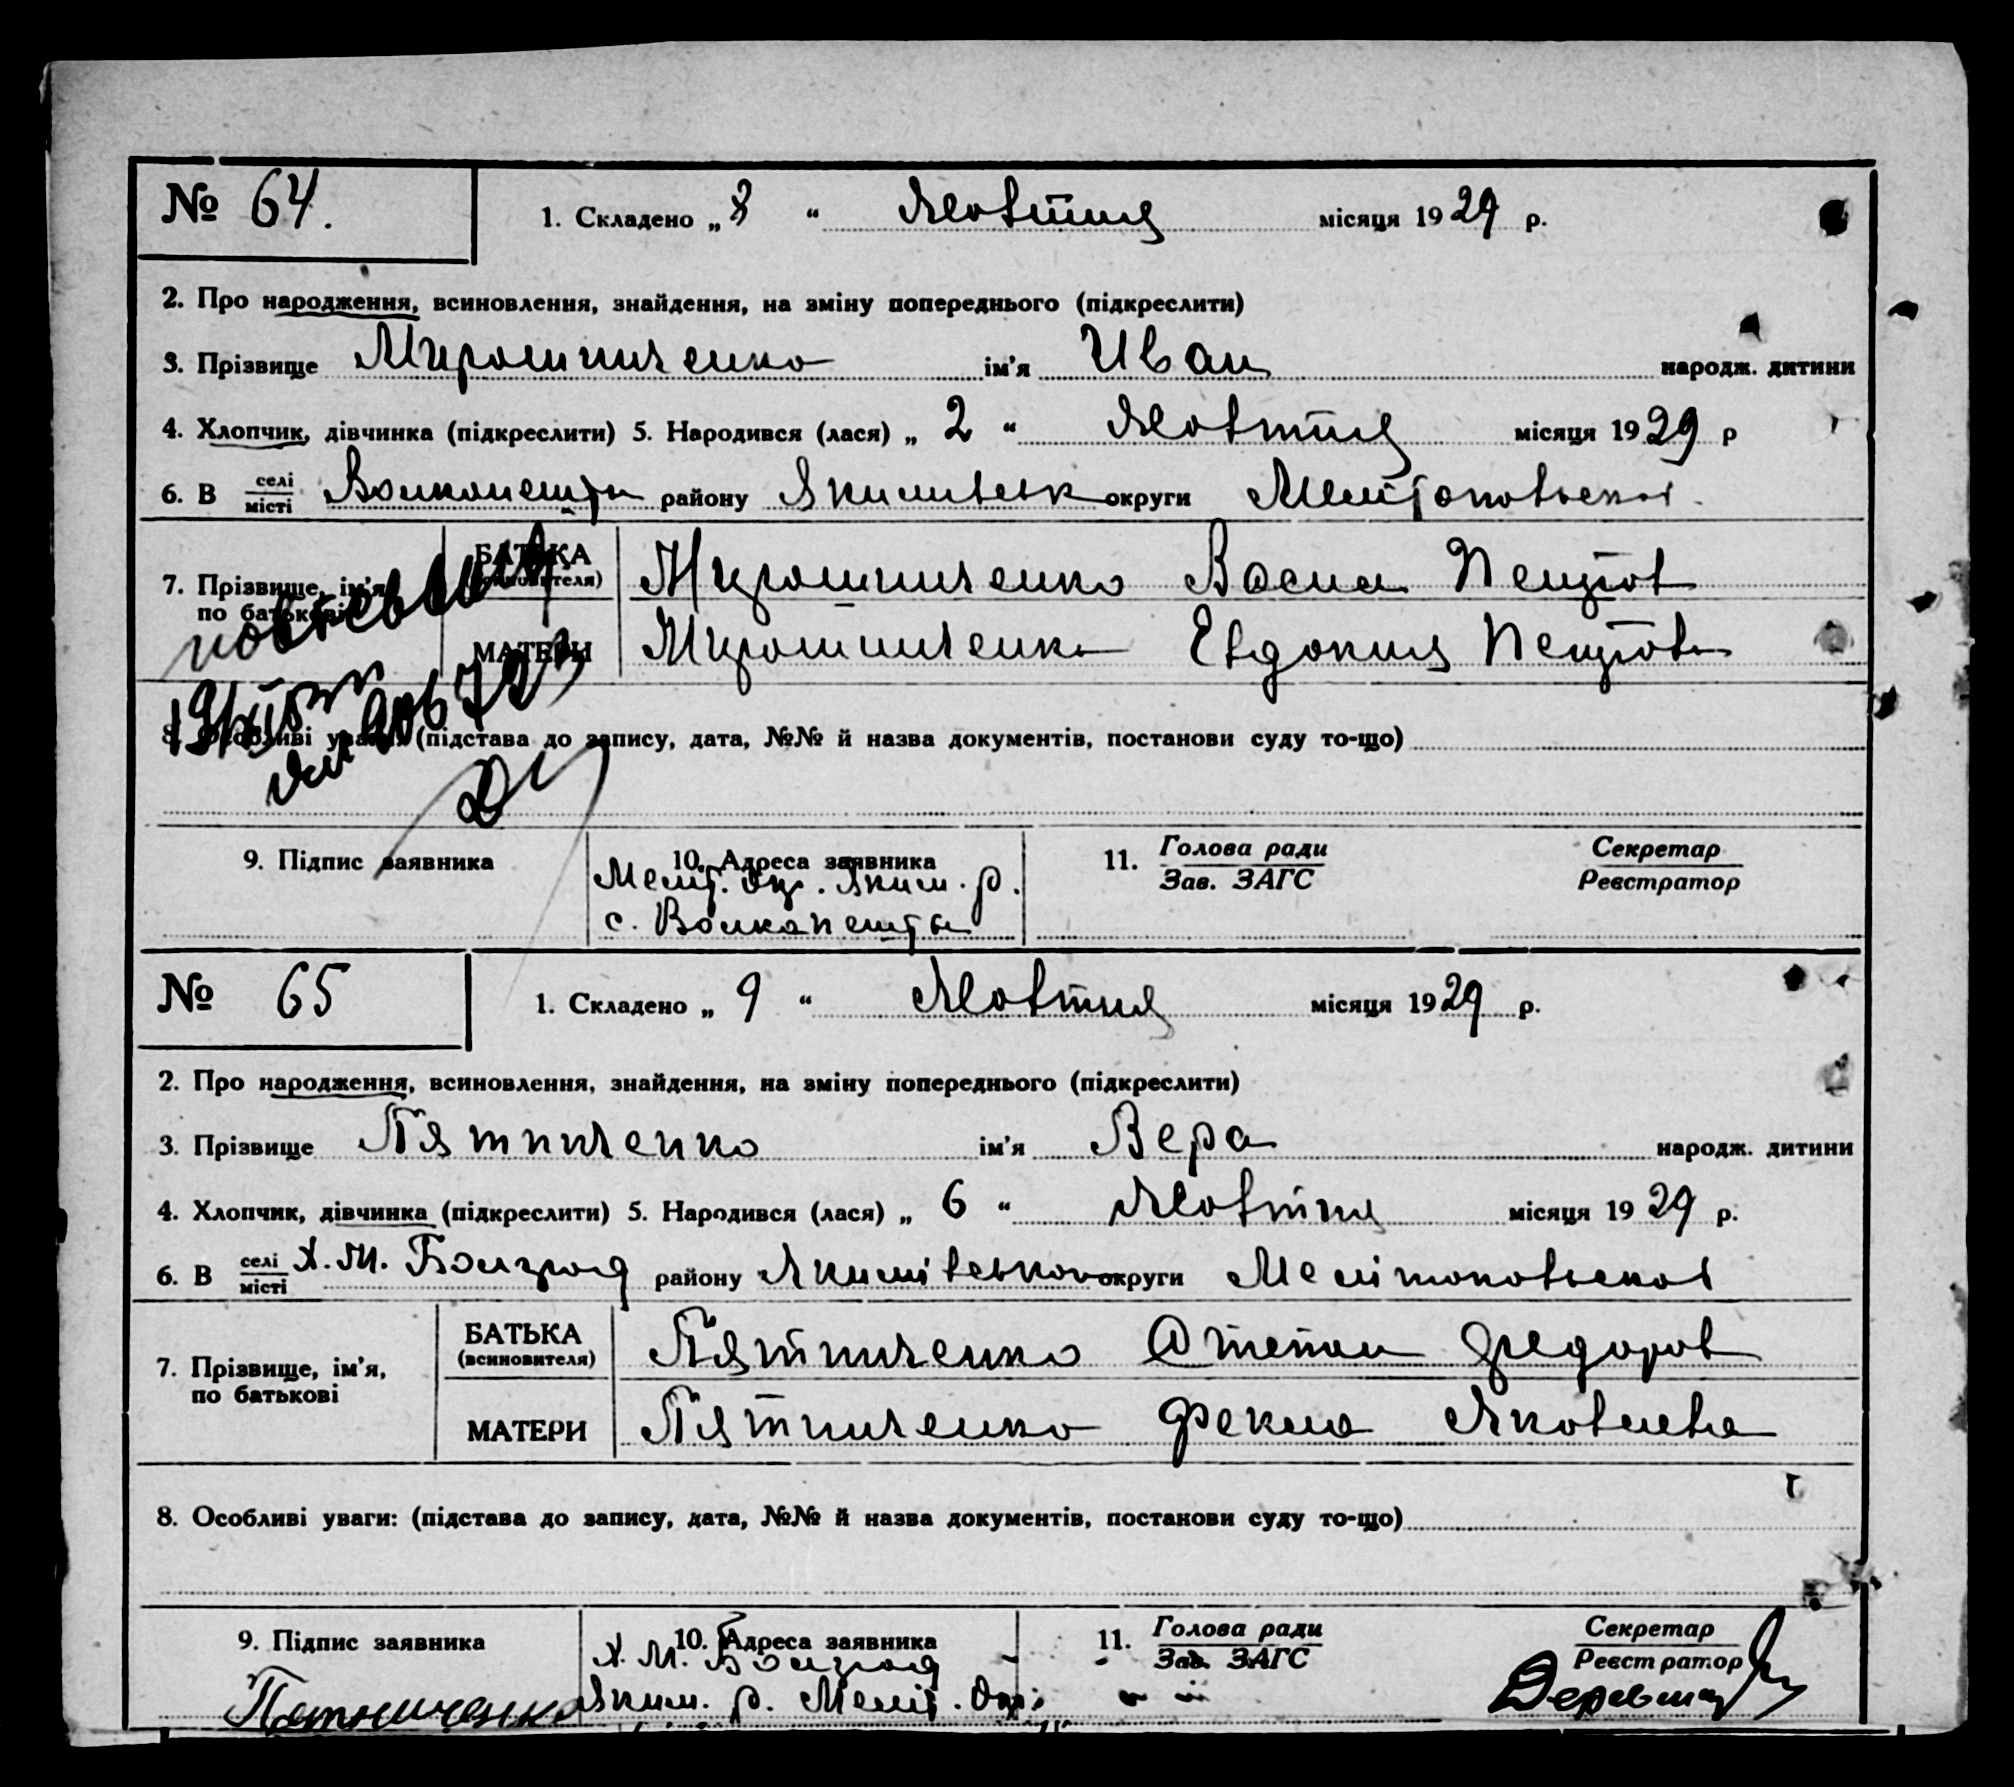 № 64.
1. Складено „ 8 “ Жовтня місяця 1929 р.
2. Про народження, всиновлення, знайдення, на зміну попереднього (підкреслити)
3. Прізвище Мирошниченко ім'я Иван народж. дитини
4. Хлопчик, дівчинка (підкреслити) 5. Народився (лася) „ 2 “ Жовтня місяця 1929 р
6. В селі місті Волканешты району Якимівськ округи Мелітоповьской
7. Прізвище, ім'я, по батькові
БАТЬКА (всиновителя) Мирошниченко Васил Петров
МАТЕРИ Мирошниченко Евдокия Петрова
8. Особливі уваги: (підстава до запису, дата, №№ й назва документів, постанови суду то-що)
9. Підпис заявника
10. Адреса заявника
Меліт. окр. Яким. р.
с. Волканешты
11. Голова ради Зав. ЗАГС
Секретар Реєстратор
№ 65
1. Складено „ 9 “ Жовтня місяця 1929 р.
2. Про народження, всиновлення, знайдення, на зміну попереднього (підкреслити)
3. Прізвище Пятниченко ім'я Вера народж. дитини
4. Хлопчик, дівчинка (підкреслити) 5. Народився (лася) „ 6 “ Жовтня місяця 1929 р.
6. В селі місті х. М. Болград району Якимівського округи Мелітоповьской
7. Прізвище, ім'я, по батькові
БАТЬКА (всиновителя) Пятниченко Степан Федоров
МАТЕРИ Пятниченко Фекла Яковлева
8. Особливі уваги: (підстава до запису, дата, №№ й назва документів, постанови суду то-що)
9. Підпис заявника
Пятниченко
10. Адреса заявника
х. М. Болград
Яким. р. Меліт. Окр.
11. Голова ради Зав. ЗАГС
Секретар Реєстратор